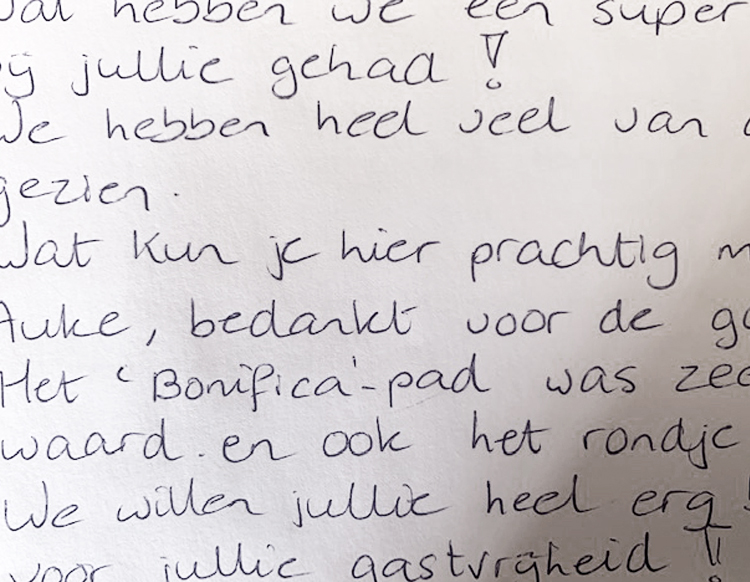 Wat hebben we een super
bij jullie gehad!
We hebben heel veel van
gezien.
Wat kun je hier prachtig
Auke, bedankt voor de
Het 'Bonifica'-pad was
waard. en ook het rondje
We willen jullie heel erg
voor jullie gastvrijheid!